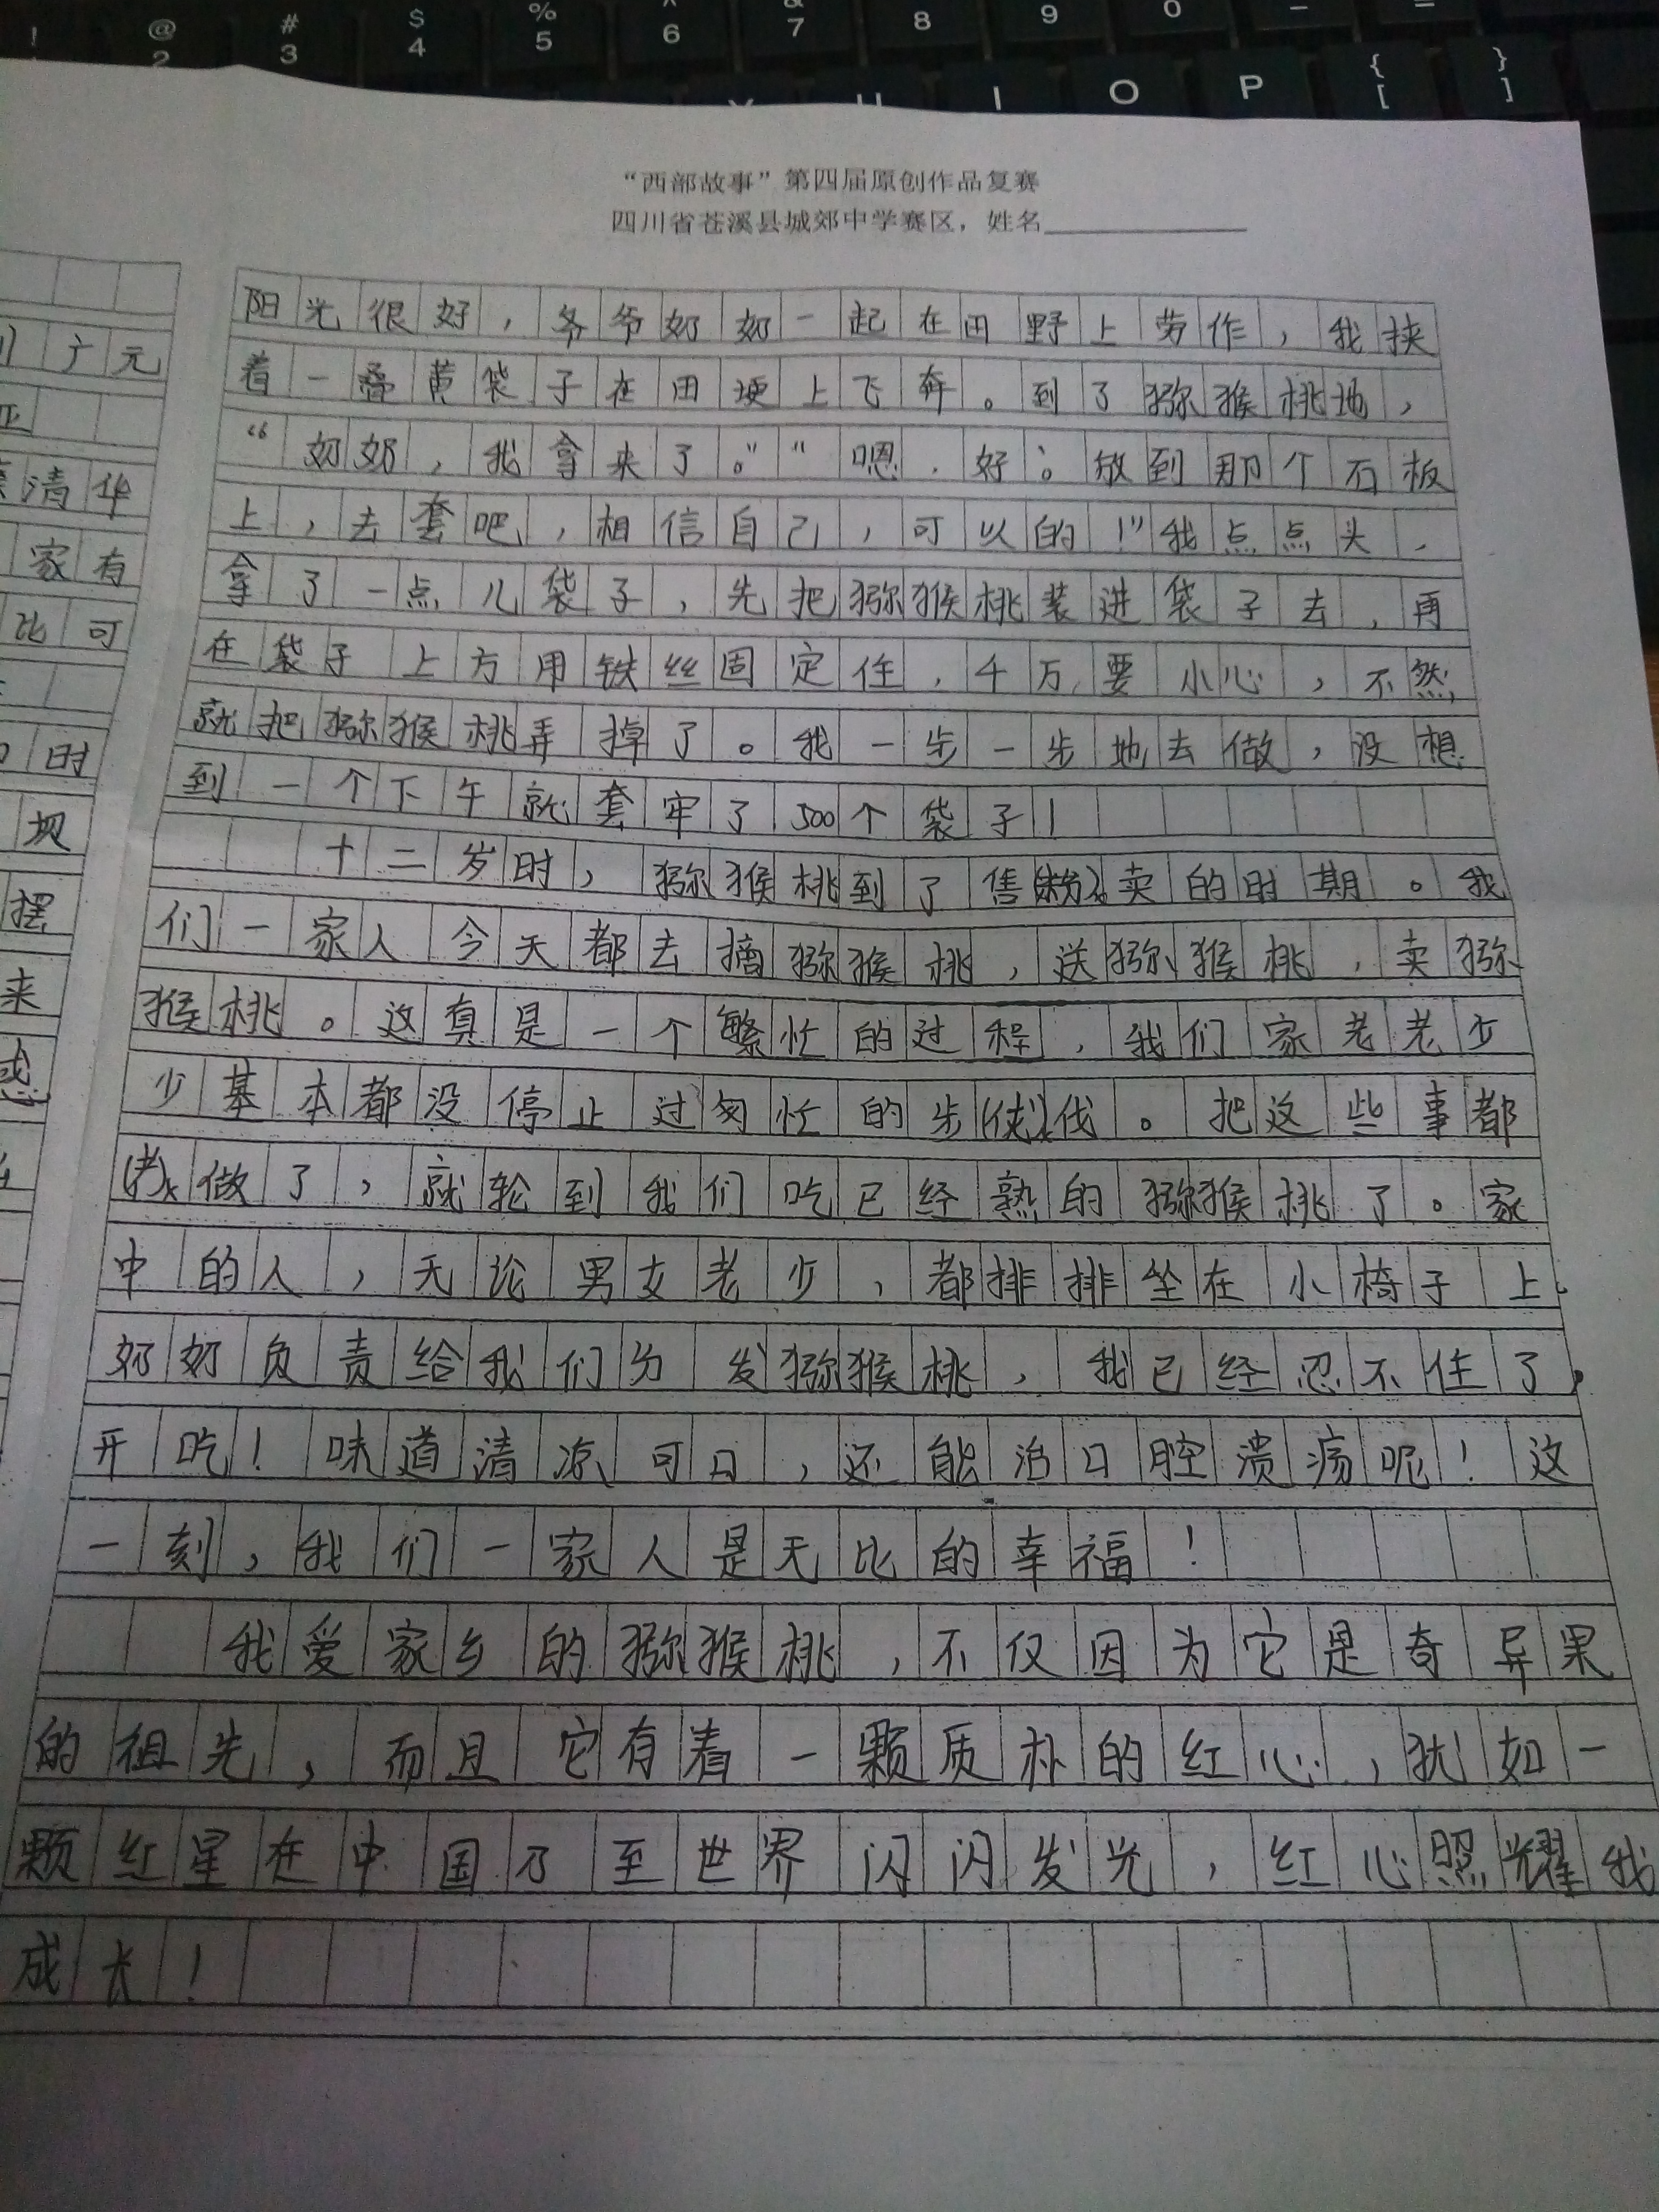 “西部故事”第四届原创作品复赛
四川省苍溪县城郊中学赛区，姓名
阳光很好，爷爷奶奶一起在田野上劳作，我挟
着一叠黄袋子在田埂上飞奔。到了猕猴桃地，
“奶奶，我拿来了。”“嗯，好。放到那个石板
上，去套吧，相信自己，可以的！”我点点头，
拿了一点儿袋子，先把猕猴桃装进袋子去，再
在袋子上方用铁丝固定住，千万要小心，不然
就把猕猴桃弄掉了。我一步一步地去做，没想
到一个下午就套牢了500个袋子！
十二岁时，猕猴桃到了售卖的时期。我
们一家人今天都去摘猕猴桃，送猕猴桃，卖猕
猴桃。这真是一个繁忙的过程，我们家老老少
少基本都没停止过匆忙的步伐。把这些事都
做了，就轮到我们吃已经熟的猕猴桃了。家
中的人，无论男女老少，都排排坐在小椅子上。
奶奶负责给我们分发猕猴桃，我已经忍不住了，
开吃！味道清凉可口，还能治口腔溃疡呢！这
一刻，我们一家人是无比的幸福！
我爱家乡的猕猴桃，不仅因为它是奇异果
的祖先，而且它有着一颗质朴的红心，犹如一
颗红星在中国乃至世界闪闪发光，红心照耀我
成长！
广元
清华
家有
比可
时
坝
摆
来
! @ 2 # 3 $ 4 % 5 ^ 6 & 7 8 9 0 - =
Y U I O P { [ } ]